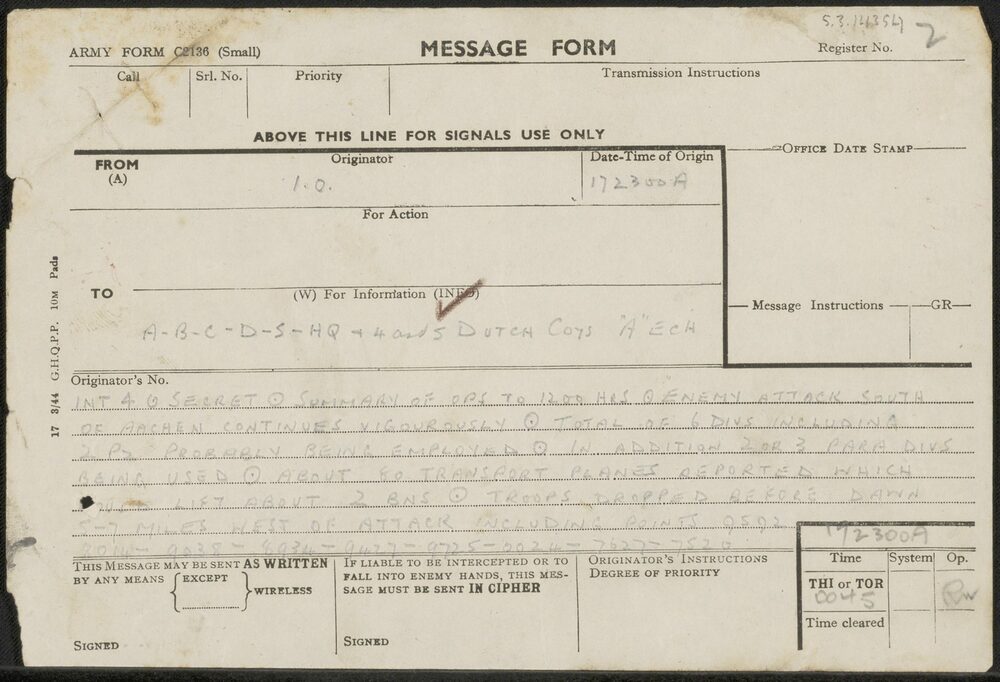 S.3.14354
2
ARMY FORM C2136 (Small)
MESSAGE FORM
Register No.
Call
Srl. No.
Priority
Transmission Instructions
ABOVE THIS LINE FOR SIGNALS USE ONLY
FROM
(A)
Originator
Date-Time of Origin
OFFICE DATE STAMP
I.O.
172300A
For Action
TO
(W) For Information (INFO)
Message Instructions
GR
A-B-C-D-S-HQ + 4 and 5 DUTCH COYS "A" ECH
17 3/44 G.H.Q.P.P. 10M Pads
Originator's No.
INT 4 ⊙ SECRET ⊙ SUMMARY OF OPS TO 1200 HRS ⊙ ENEMY ATTACK SOUTH
OF AACHEN CONTINUES VIGOUROUSLY ⊙ TOTAL OF 6 DIVS INCLUDING
2 PZ PROBABLY BEING EMPLOYED ⊙ IN ADDITION 2 OR 3 PARA DIVS
BEING USED ⊙ ABOUT 80 TRANSPORT PLANES REPORTED WHICH
LIFT ABOUT 2 BNS ⊙ TROOPS DROPPED BEFORE DAWN
5-7 MILES WEST OF ATTACK INCLUDING POINTS 9592
9038 - 8934 - 9427 - 9725
172300A
THIS MESSAGE MAY BE SENT AS WRITTEN
BY ANY MEANS
EXCEPT
WIRELESS
SIGNED
IF LIABLE TO BE INTERCEPTED OR TO
FALL INTO ENEMY HANDS, THIS MES-
SAGE MUST BE SENT IN CIPHER
SIGNED
ORIGINATOR'S INSTRUCTIONS
DEGREE OF PRIORITY
Time
System
Op.
THI or TOR
0045
RW
Time cleared